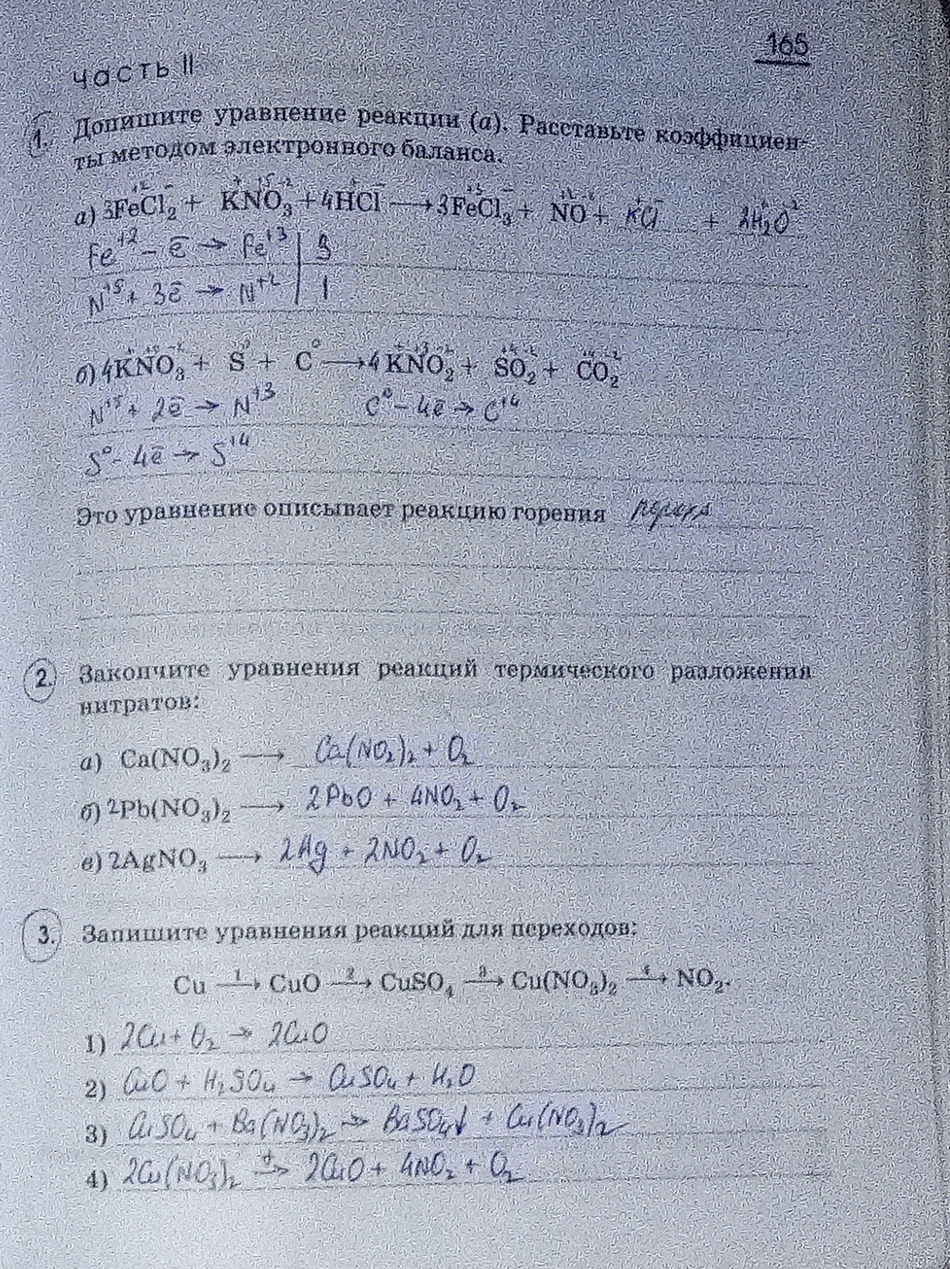 165
ЧАСТЬ II
1. Допишите уравнение реакции (а). Расставьте коэффициен-
ты методом электронного баланса.
а) 3FeCl₂ + KNO₃ + 4HCl ⟶ 3FeCl₃ + NO + KCl + 2H₂O
Fe⁺² − ē → Fe⁺³ | 3
N⁺⁵ + 3ē → N⁺² | 1
б) 4KNO₃ + S + C ⟶ 4KNO₂ + SO₂ + CO₂
N⁺⁵ + 2ē → N⁺³ C⁰ − 4ē → C⁺⁴
S⁰ − 4ē → S⁺⁴
Это уравнение описывает реакцию горения
2. Закончите уравнения реакций термического разложения
нитратов:
а) Ca(NO₃)₂ ⟶ Ca(NO₂)₂ + O₂
б) 2Pb(NO₃)₂ ⟶ 2PbO + 4NO₂ + O₂
в) 2AgNO₃ ⟶ 2Ag + 2NO₂ + O₂
3. Запишите уравнения реакций для переходов:
Cu —1→ CuO —2→ CuSO₄ —3→ Cu(NO₃)₂ —4→ NO₂.
1) 2Cu + O₂ → 2CuO
2) CuO + H₂SO₄ → CuSO₄ + H₂O
3) CuSO₄ + Ba(NO₃)₂ → BaSO₄↓ + Cu(NO₃)₂
4) 2Cu(NO₃)₂ → 2CuO + 4NO₂ + O₂